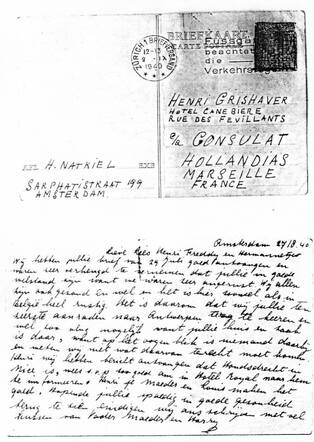 ZÜRICH 1 BRIEFVERSAND
12-13
9.IX
1940
BRIEFKAART
CARTE POSTALE
Fussgänger
beachtet
die
Verkehrsregeln
HENRI GRISHAVER
HOTEL CANEBIERE
RUE DES FEVILLANTS
c/o CONSULAT
HOLLANDIAS
MARSEILLE
FRANCE
AFZ. H. NATKIEL
EXP.
SARPHATISTRAAT 199
AMSTERDAM.
Amsterdam 27/8.40
Lieve Kees Henri Freddy en Hermannetje
Wij hebben jullie brief van 29 juli goed ontvangen en
waren zeer verheugd te vernemen dat jullie in goede
welstand zijn want we waren zeer ongerust. Wij allen
zijn ook gezond en wel en het is hier zoowel als in
België heel rustig. Het is daarom dat wij jullie ten
zeerste aanraden naar Antwerpen terug te keeren en
wel zoo vlug mogelijk want jullie huis en zaak
is daar, want op het oogen blik is niemand daarbij
en weten wij niet wat daarvan terecht moet komen
Henri wij hebben bericht ontvangen dat
Nice is, wees s.v.p. zoo goed om in Hotel Royal naar hem
te informeeren. Henri je moeder en Louis maken het
goed. Hopende jullie spoedig in goede gezondheid
terug te zien, eindigen wij ons schrijven met veel
kussen van Vader Moeder en Harry